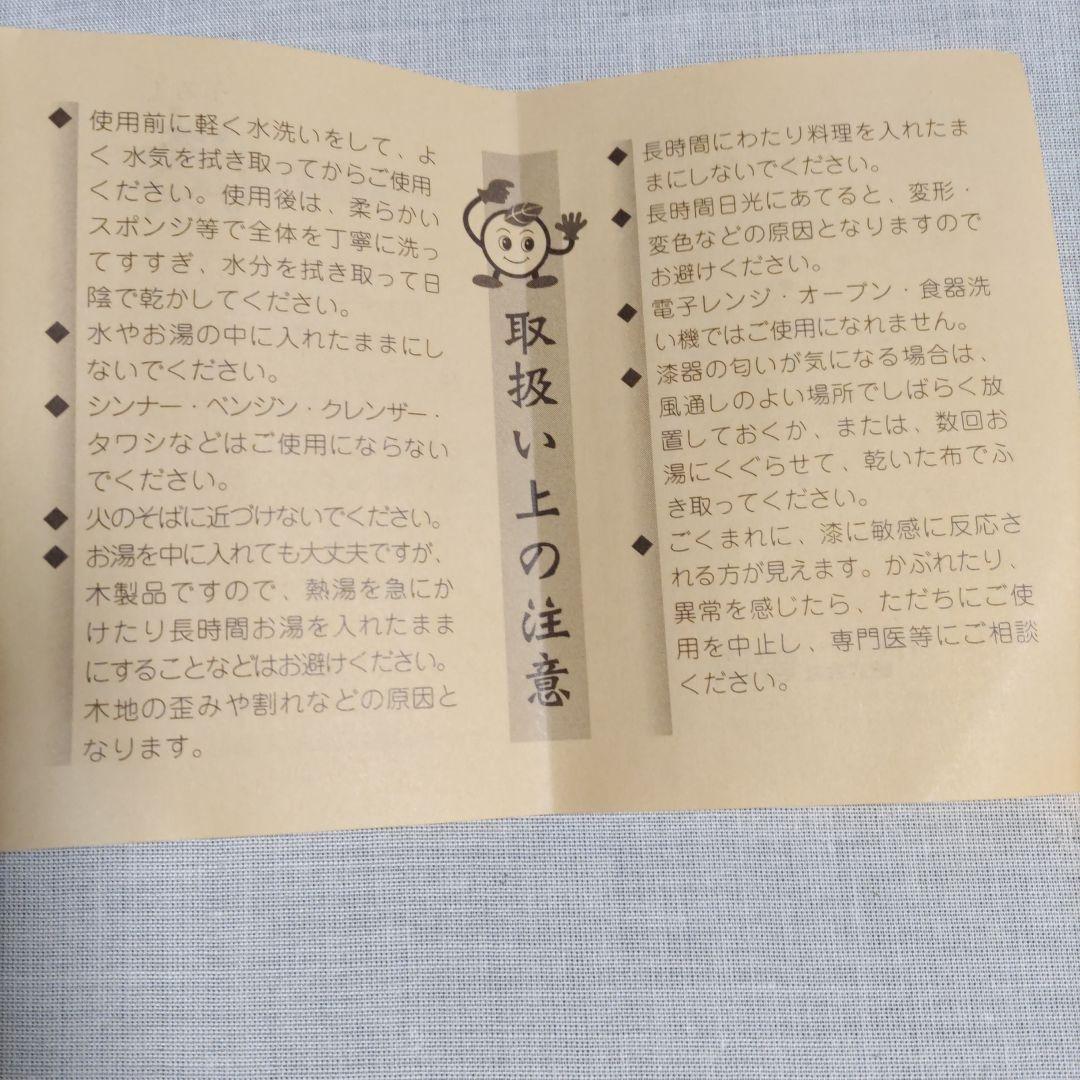 ◆使用前に軽く水洗いをして、よ
く水気を拭き取ってからご使用
ください。使用後は、柔らかい
スポンジ等で全体を丁寧に洗っ
てすすぎ、水分を拭き取って日
陰で乾かしてください。
◆水やお湯の中に入れたままにし
ないでください。
◆シンナー・ベンジン・クレンザー・
タワシなどはご使用にならない
でください。
◆火のそばに近づけないでください。
◆お湯を中に入れても大丈夫ですが、
木製品ですので、熱湯を急にか
けたり長時間お湯を入れたまま
にすることなどはお避けください。
木地の歪みや割れなどの原因と
なります。
取扱い上の注意
◆長時間にわたり料理を入れたま
まにしないでください。
◆長時間日光にあてると、変形・
変色などの原因となりますので
お避けください。
◆電子レンジ・オーブン・食器洗
い機ではご使用になれません。
◆漆器の匂いが気になる場合は、
風通しのよい場所でしばらく放
置しておくか、または、数回お
湯にくぐらせて、乾いた布でふ
き取ってください。
◆ごくまれに、漆に敏感に反応さ
れる方が見えます。かぶれたり、
異常を感じたら、ただちにご使
用を中止し、専門医等にご相談
ください。